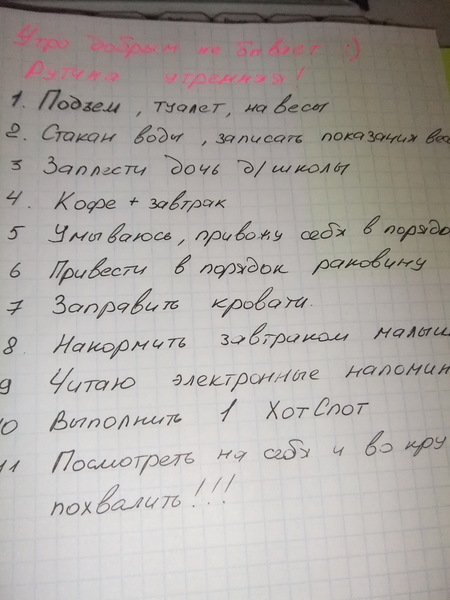 Утро добрым не бывает :)
Рутина утренняя!
1. Подъем, туалет, на весы
2. Стакан воды, записать показания
3 Заплести дочь д/школы
4. Кофе + завтрак
5 Умываюсь, привожу себя в
6 Привести в порядок раковину
7 Заправить кровати.
8 Накормить завтраком
9 Читаю электронные
10 Выполнить 1 ХотСпот
11 Посмотреть на себя и во
похвалить!!!